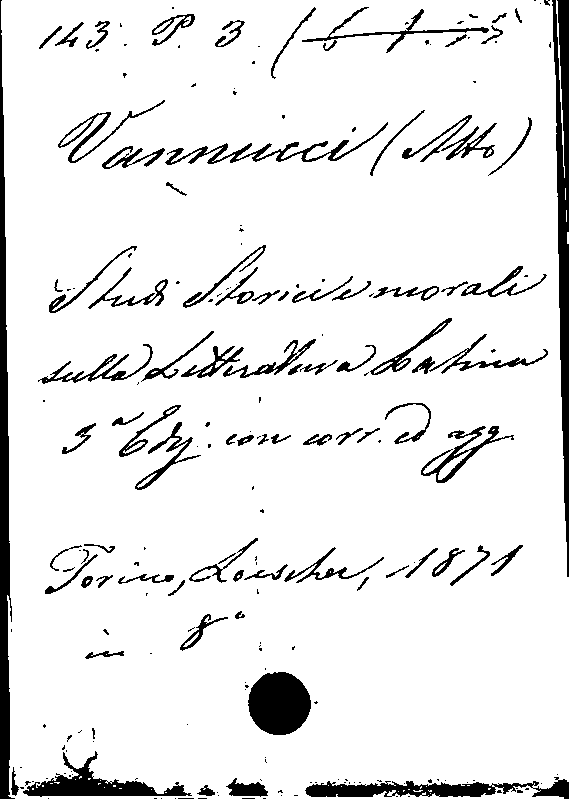 143. P. 3.
Vannucci (Atto)
Studi Storici e morali
sulla Letteratura Latina
3ª Ediz. con corr. ed agg.
Torino, Loescher, 1871
in 8°